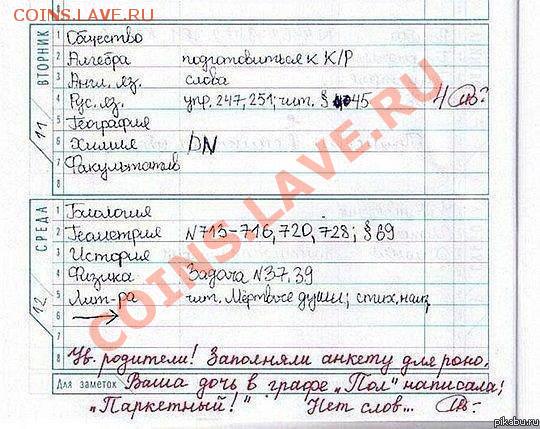 COINS.LAVE.RU
ВТОРНИК
11
1 Общество
2 Алгебра подготовиться к К/Р
3 Англ. яз. слова
4 Рус. яз. упр. 247, 251; чит. § 45 4
5 География
6 Химия DN
7 Факультатив
8
СРЕДА
12
1 Биология
2 Геометрия N 713-716, 720, 728; § 69
3 История
4 Физика Задача N 37, 39
5 Лит-ра чит. Мёртвые души; стих. наиз.
6 →
7
8 Ув. родители! Заполняли анкету для роно,
Для заметок Ваша дочь в графе „Пол" написала:
„Паркетный!" Нет слов...
COINS.LAVE.RU
pikabu.ru